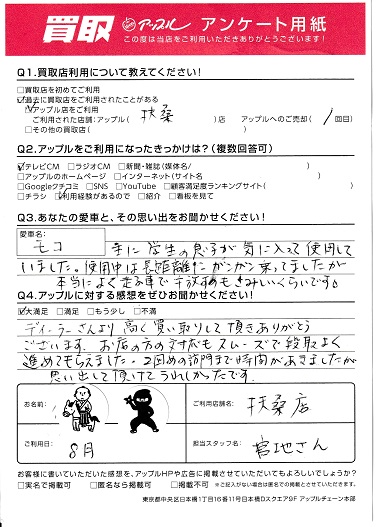 買取 アップル アンケート用紙
この度は当店をご利用いただきありがとうございます！
Q1.買取店利用について教えてください！
□買取店を初めてご利用
☑過去に買取店をご利用されたことがある
☑アップル店をご利用
ご利用された店舗:アップル( 扶桑 )店 アップルへのご売却( 1 回目)
□その他の買取店( )
Q2.アップルをご利用になったきっかけは？(複数回答可)
☑テレビCM □ラジオCM □新聞・雑誌(媒体名/ )
□アップルのホームページ □インターネット(サイト名 )
□Googleクチコミ □SNS □YouTube □顧客満足度ランキングサイト( )
□チラシ ☑利用経験があるので □紹介 □看板を見て
Q3.あなたの愛車と、その思い出をお聞かせください！
愛車名:
モコ 主に学生の息子が気に入って使用して
いました。使用中は長距離だがガンガン乗ってましたが
本当によく走る車で手放すのもさみしいくらいです
Q4.アップルに対する感想をぜひお聞かせください！
☑大満足 □満足 □もう少し □不満
ディーラーさんより高く買い取りして頂きありがとう
ございます。お店の方の対応もスムーズで段取よく
進めてもらえました。2回めの訪問まで時間があきましたが
思い出して頂けてうれしかったです。
お名前:
ご利用店舗名:
扶桑店
ご利用日:
8月
担当スタッフ名:
宮地さん
お客様に書いていただいた感想を、アップルHPや広告に掲載させていただいてもよろしいでしょうか？
□実名で掲載可 □匿名なら掲載可 □掲載不可 ※ご記入がない場合は匿名での掲載とさせていただきます。
東京都中央区日本橋1丁目16番11号日本橋Dスクエア9F アップルチェーン本部